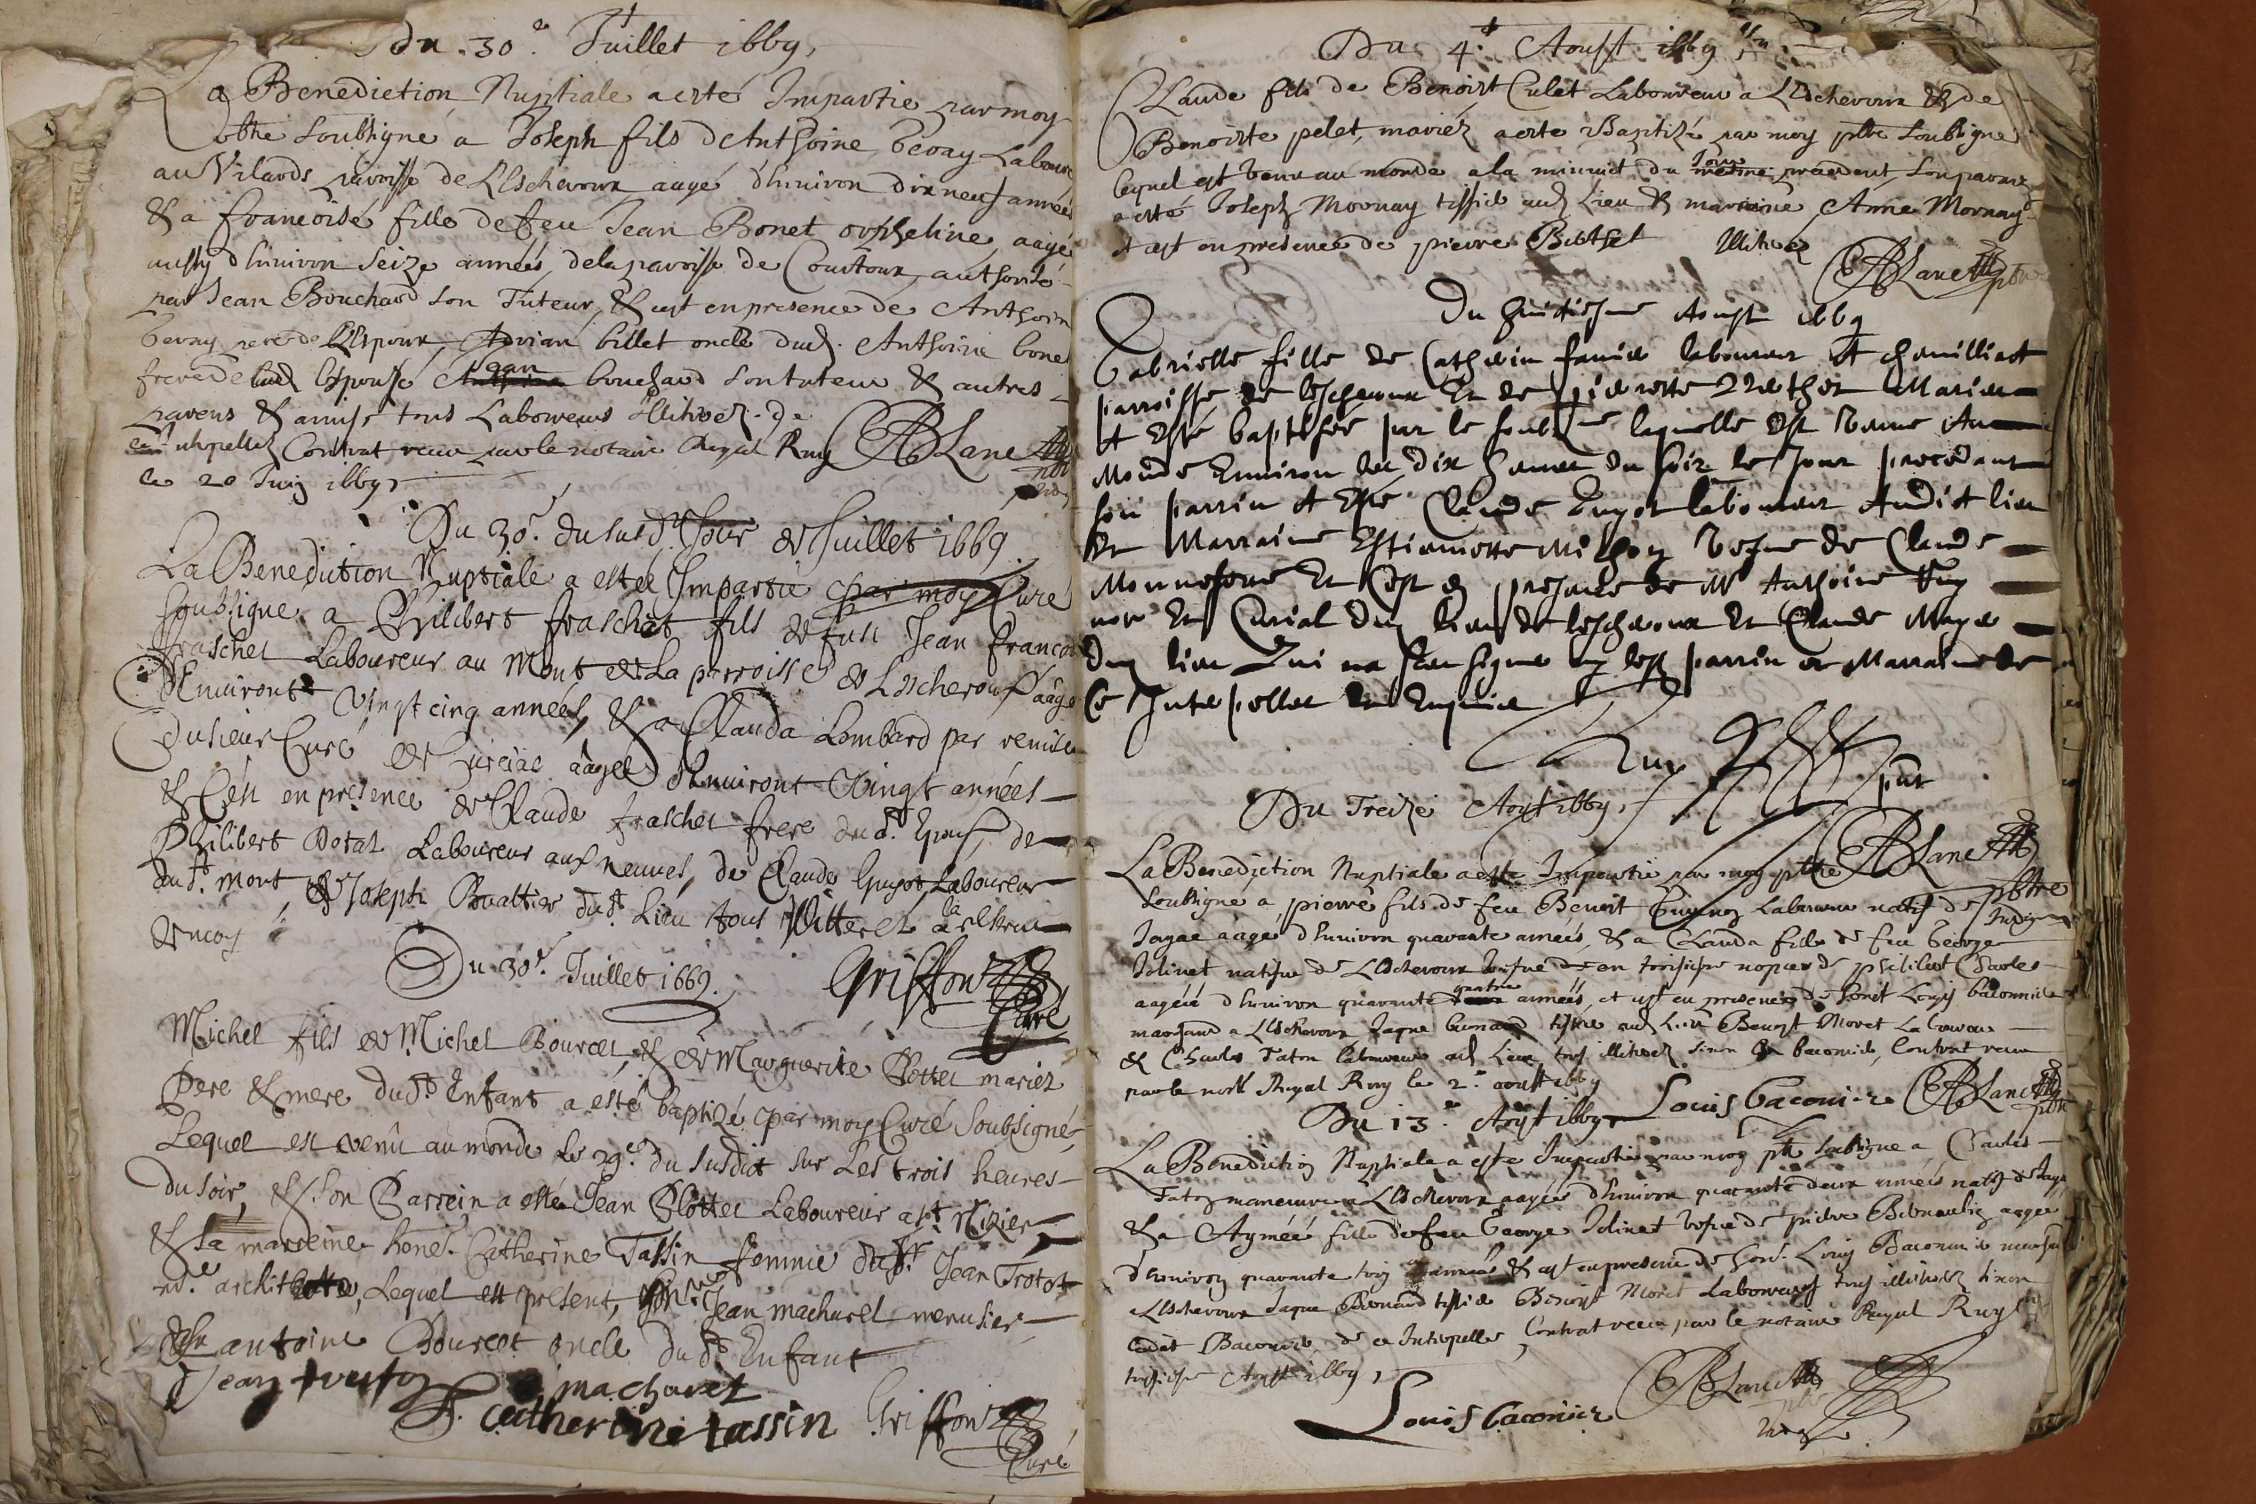 du 30e Juillet 1669,
La Benediction Nuptiale a esté Impartie par moy
pbtre soubsigné a Joseph fils d'Anthoine Gevay Labour
au Vilards paroisse de L'Escheroux aagé d'huiron dixneuf années
& a francoise fille de feu Jean Bonet orpheline, aagée
aussy d'huiron seize années, de la paroisse de Courtoux authorisé
par Jean Bouchard son Tuteur, & c'est en presence de Anthoin
Gevay pere de L'Espoux, Adrian billet oncle dud. Anthoine bonet
frere de lad. Espouse Jean bouchard son tuteur & autres
parens & amis tous Laboureurs Illiterez de
ce interpellez Contrat receu par le notaire Royal Ruy ABLanc
le 20 Juin 1669, pbtre
Du 30e. du susdt Jour de Juillet 1669.
La Benediction Nuptiale a estée Impartie par moy Curé
soubsigné a Philibert fraschet fils de fust Jean francois
fraschet Laboureur au Mont de La parroisse de L'Escheroux aâgé
d'Enuiront Vingt cinq années, & a Clauda Lombard par remise
du sieur Curé de Curciac aâgée d'Enuiront Vingt années
& C'est en presence de Claude fraschet frere du dt. Epoux, de
Philibert Dorat Laboureur aux neuves, de Claude Guyot Laboureur
dudt. mont, & Joseph Buattier dudt. Lieu tous Illitterez
de moy Griffon
Curé
Du 30e. Juillet 1669.
Michel fils de Michel Bourcet, & de Marguerite Plottet mariez
Pere & mere dudt. Enfant a esté baptizé par moy Curé soubsigné,
Lequel est venû au monde le 29e. du susdit sur Les trois heures
du soir, & son Parrein a esté Jean Plottet Laboureur a st. Nizier
& sa marreine honêt. Catherine Tassin femme du sr. Jean Trotot
architecte, Lequel est present, Jean macharet menusier
& antoine Bourcet oncle dudt. Enfant
Jean macharet
catherine tassin Griffon
Curé
Du 4e Aoust 1669
Claude fils de Benoist Culet Laboureur a L'Escheroux & de
Benoiste pelet, mariéz a esté Baptizé par moy pbtre soubsigné
lequel est venu au monde a la minuict du Jour precedent, son parrain
a esté Joseph Mornay tissier aud. Lieu & marraine Anne Mornay
& c'est en presence de pierre Berthet Illiterez
ABLanc pbtre
Du huictiesme Aoust 1669
Gabrielle fille de Catherin favier laboureur A chavilliatt
parroisse de lescheroux Et de pierrette Brethet Mariez
A Esté baptisée par le soubsigné laquelle Est Venue Au
Monde Enuiron les dix heures du soir le Jour precedant
son parrin A Esté Claude Guyot laboureur Audict lieu
Et Marraine Estiennette Michon Vefve de Claude
Monnefeure Et C'est en presence de Mr Anthoine Ruy
nore Et Curial dud. lieu de lescheroux Et Claude Maye
dud. lieu Qui na sceu signer ny les parrin et Marraine de
Ce Interpellez Et Enquis
Ruy
Du Treize Aoust 1669,
ABLanc pbtre
La Benediction Nuptiale a esté Impartie par moy pbtre
soubsigné a pierre fils de feu Benoit Guynoz Laboureur natif de
Jayac aagé d'huiron quarante années, & a Clauda fille de feu George
Jolinet natifve de L'Escheroux vefve en troisiesme nopces de philibert Charles
aagée d'huiron quarante quatre années, et c'est en presence de honêt Louys baconnier
marchand a L'Escheroux Jaque Bernard tissier aud. Lieu Benoyt Moret Laboureur
& Charles Taton laboureur aud. Lieu tous illiterez sinon led. baconnier, Contrat receu
par le nore Royal Ruy le 2e aoust 1669
Louis baconier ABLanc pbtre
Du 13e. Aoust 1669,
La Benediction Nuptiale a esté Impartie par moy pbtre soubsigné a Charles
Taton maneuvre a L'Escheroux aagée d'huiron quarante deux années natif de Jaya
& a Aymée fille de feu George Jolinet vefve de pierre aagée
d'huiron quarante trois années & c'est en presence de honêt Louys Baconnier marchand
a L'Escheroux Jaque Bernard tissier Benoyt Moret Laboureurs tous illiterez sinon
ledit Baconier de ce Interpellés, Contrat receu par le notaire Royal Ruy le
troisiesme Aoust 1669,
Louis baconier
ABLanc